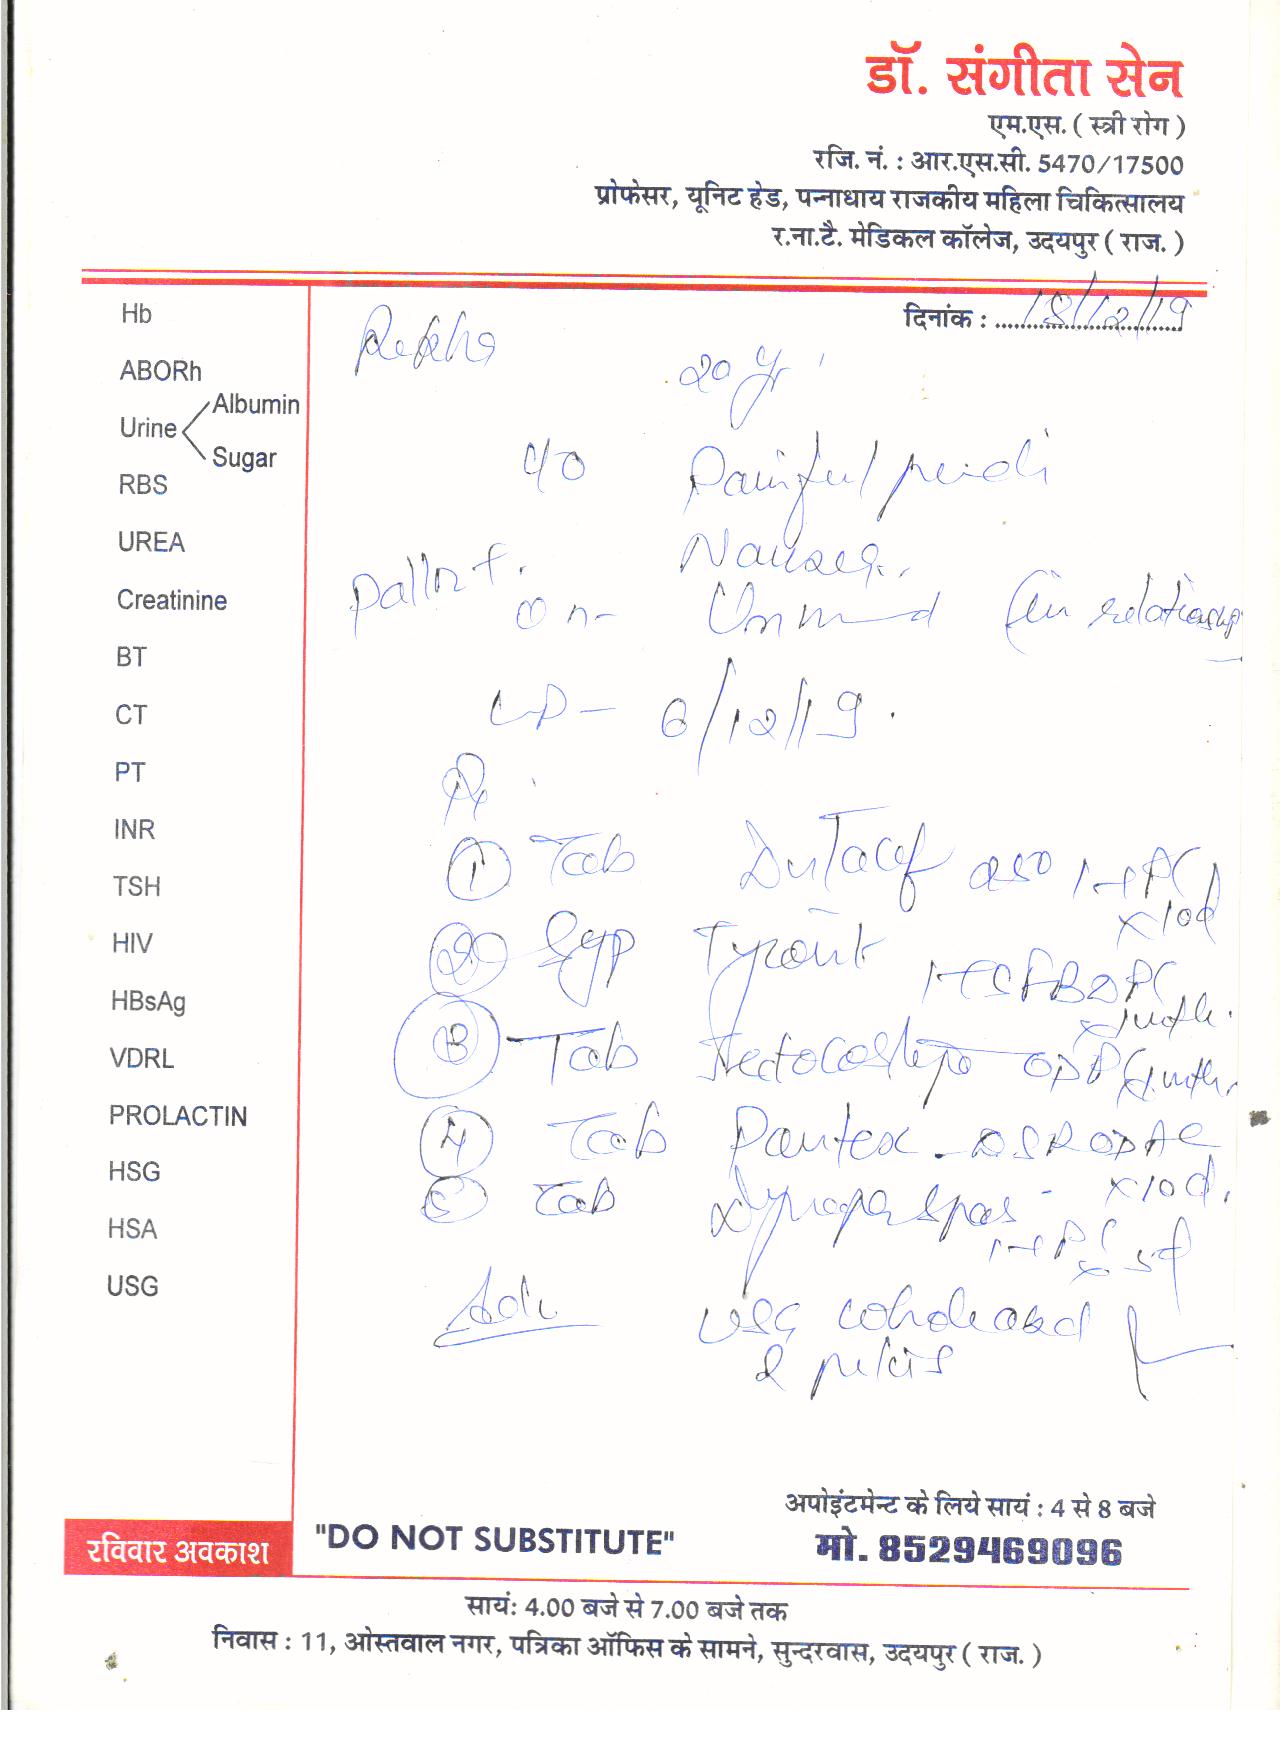 डॉ. संगीता सेन
एम.एस. ( स्त्री रोग )
रजि. नं. : आर.एस.सी. 5470/17500
प्रोफेसर, यूनिट हेड, पन्नाधाय राजकीय महिला चिकित्सालय
र.ना.टै. मेडिकल कॉलेज, उदयपुर ( राज. )
दिनांक : 18/12/19
Hb
ABORh
Urine Albumin
Sugar
RBS
UREA
Creatinine
BT
CT
PT
INR
TSH
HIV
HBsAg
VDRL
PROLACTIN
HSG
HSA
USG
Rekha
20 Yr
c/o Painful
Nausea
Pallor +
(in relationship
6/12/19
Rx
1 Tab 250 1-1 PC
x10d
2 Syp
1TSF BD PC
3 Tab OD PC
4 Tab DSR OD AC
x10d
5 Tab spas
1-1 PC
Adv USG whole abd
& pelvis
रविवार अवकाश
"DO NOT SUBSTITUTE"
अपोइंटमेन्ट के लिये सायं : 4 से 8 बजे
मो. 8529469096
सायं: 4.00 बजे से 7.00 बजे तक
निवास : 11, ओस्तवाल नगर, पत्रिका ऑफिस के सामने, सुन्दरवास, उदयपुर ( राज. )